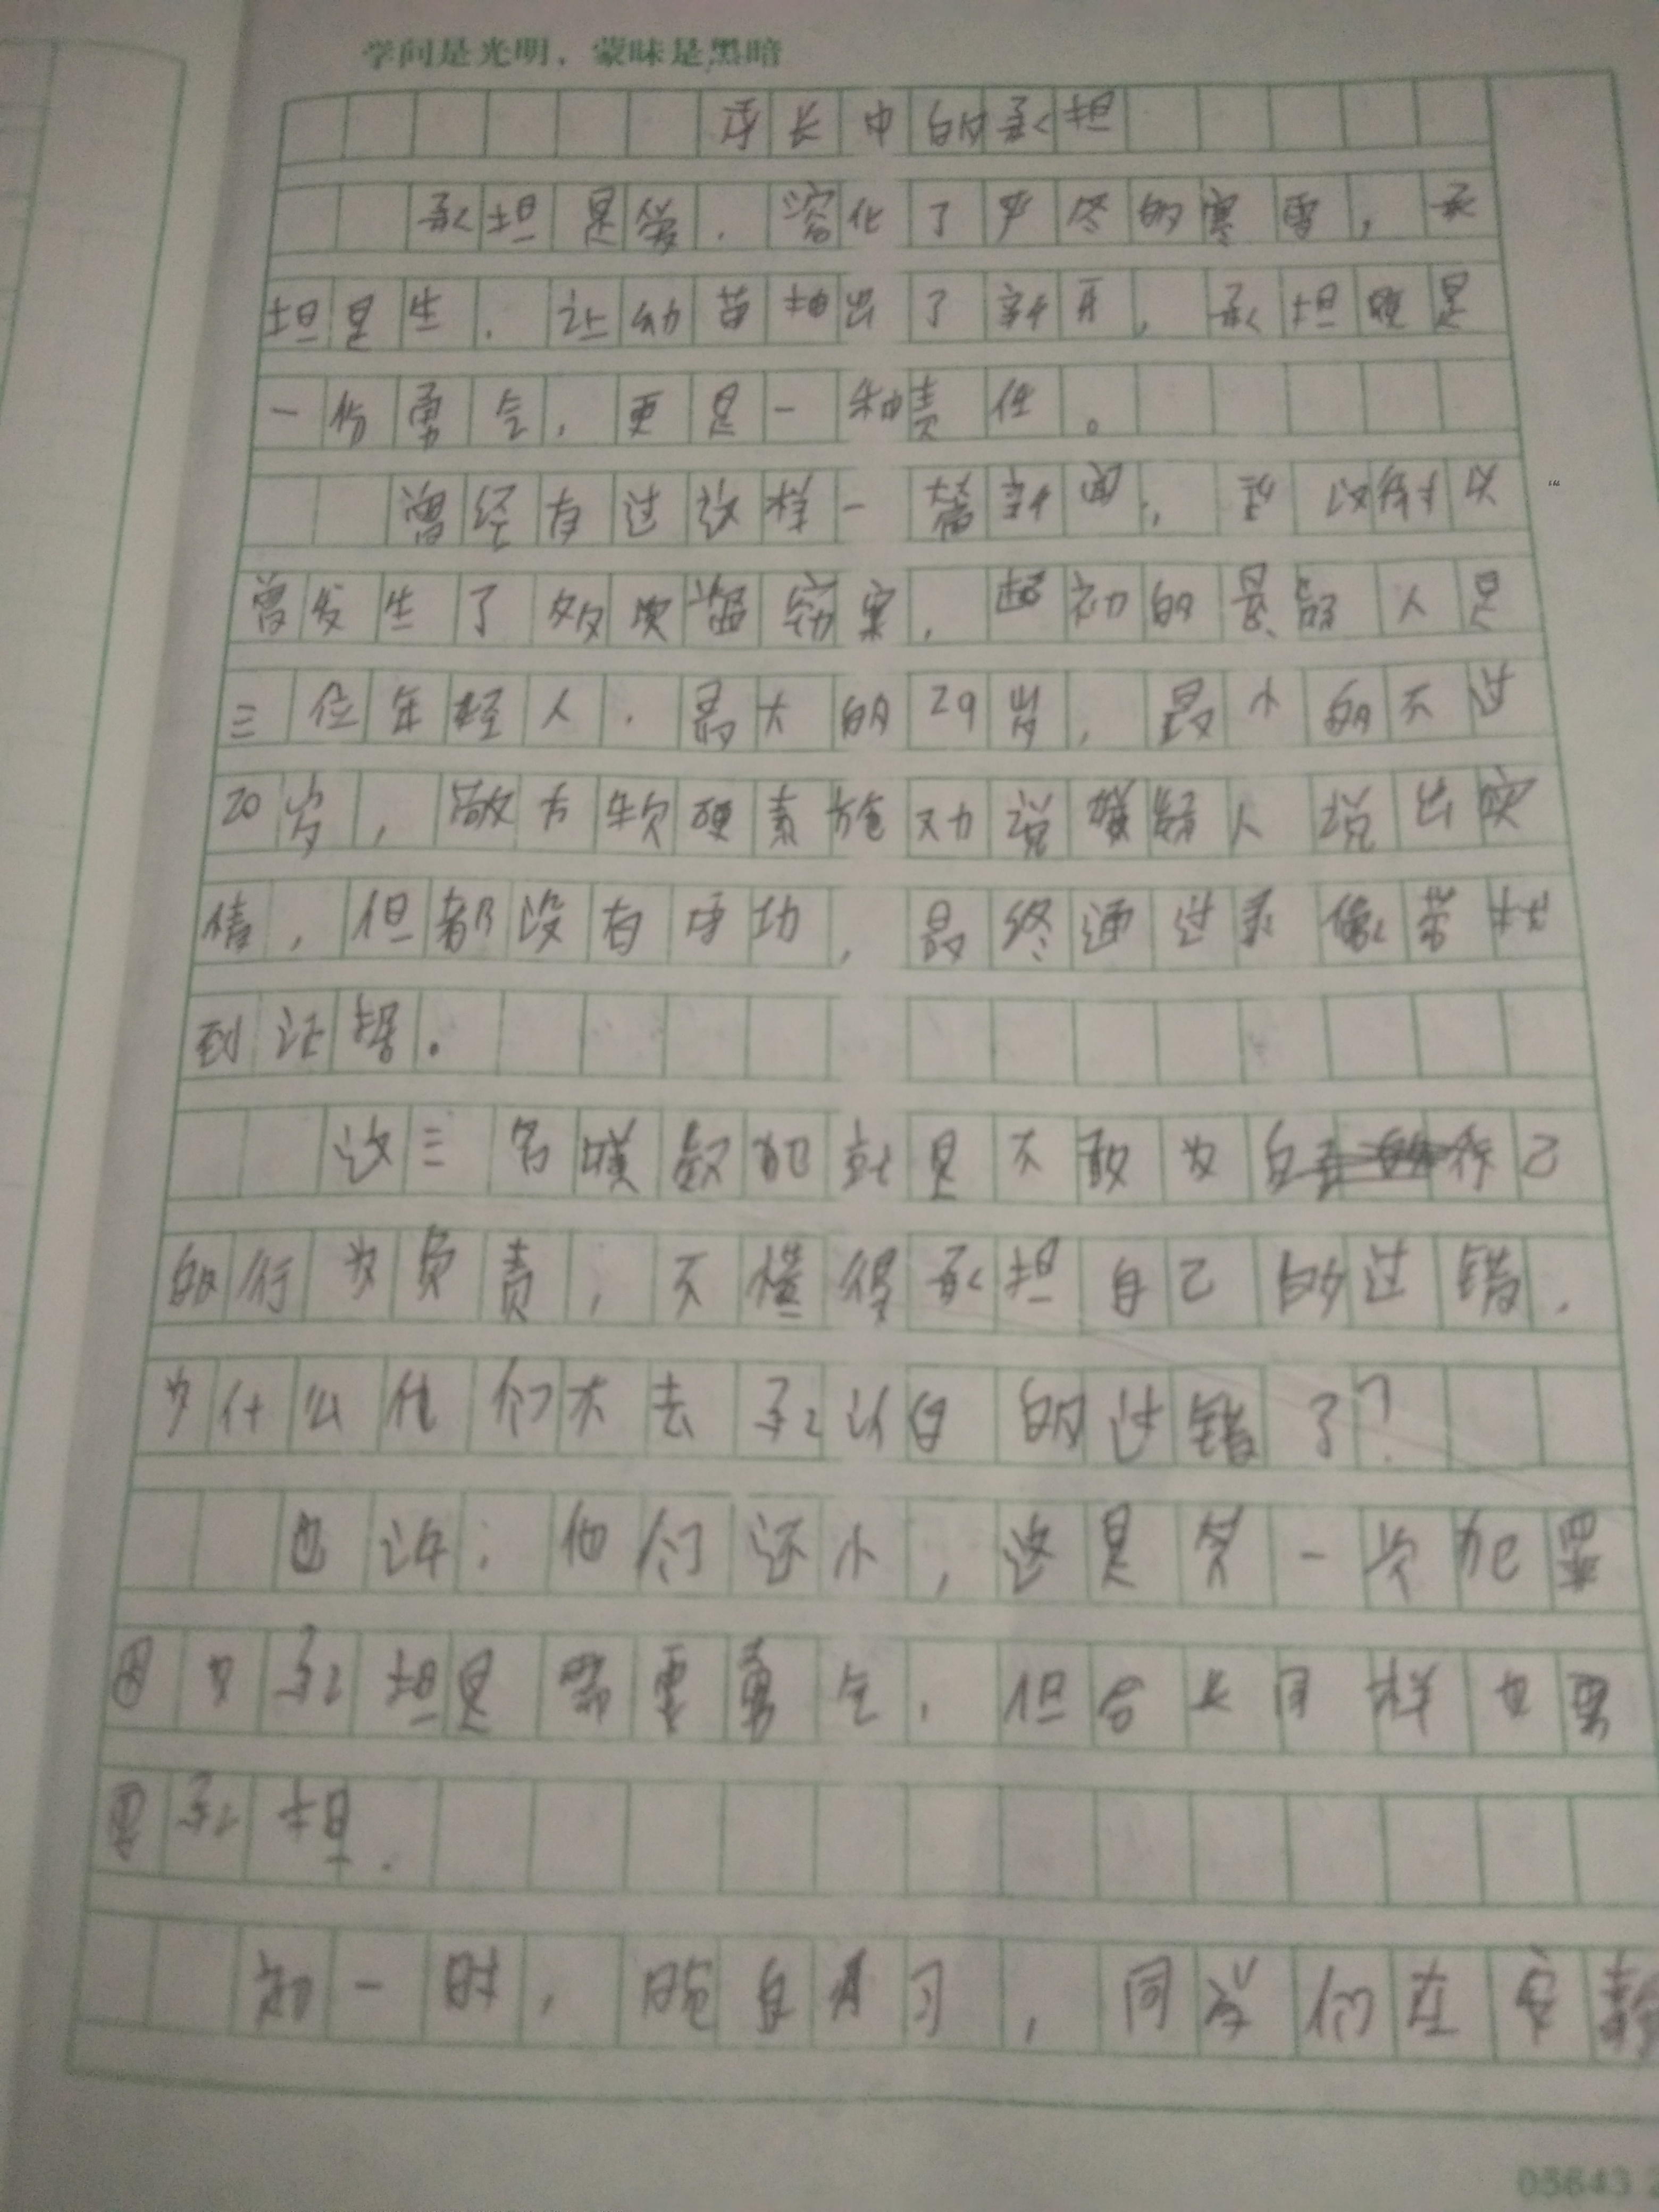 学问是光明，蒙昧是黑暗
成长中的承担
承担是爱，溶化了严冬的寒雪，承
担是生，让幼苗抽出了新牙，承担既是
一份勇气，更是一种责任。
曾经有过这样一篇新闻，在
曾发生了数次盗窃案，的人是
三位年轻人，最大的29岁，最小的不过
20岁，软硬劝说嫌疑人说出实
情，但都没有成功，最终通过录像带找
到证据。
这三名嫌疑犯就是不敢为自己
的行为负责，不懂得承担自己的过错，
为什么他们不去承认自的过错了？
也许，他们还小，这是第一次犯罪
因为承担是需要勇气，但未同样也要
承担。
初一时，晚自习，同学们在安静
05643 2